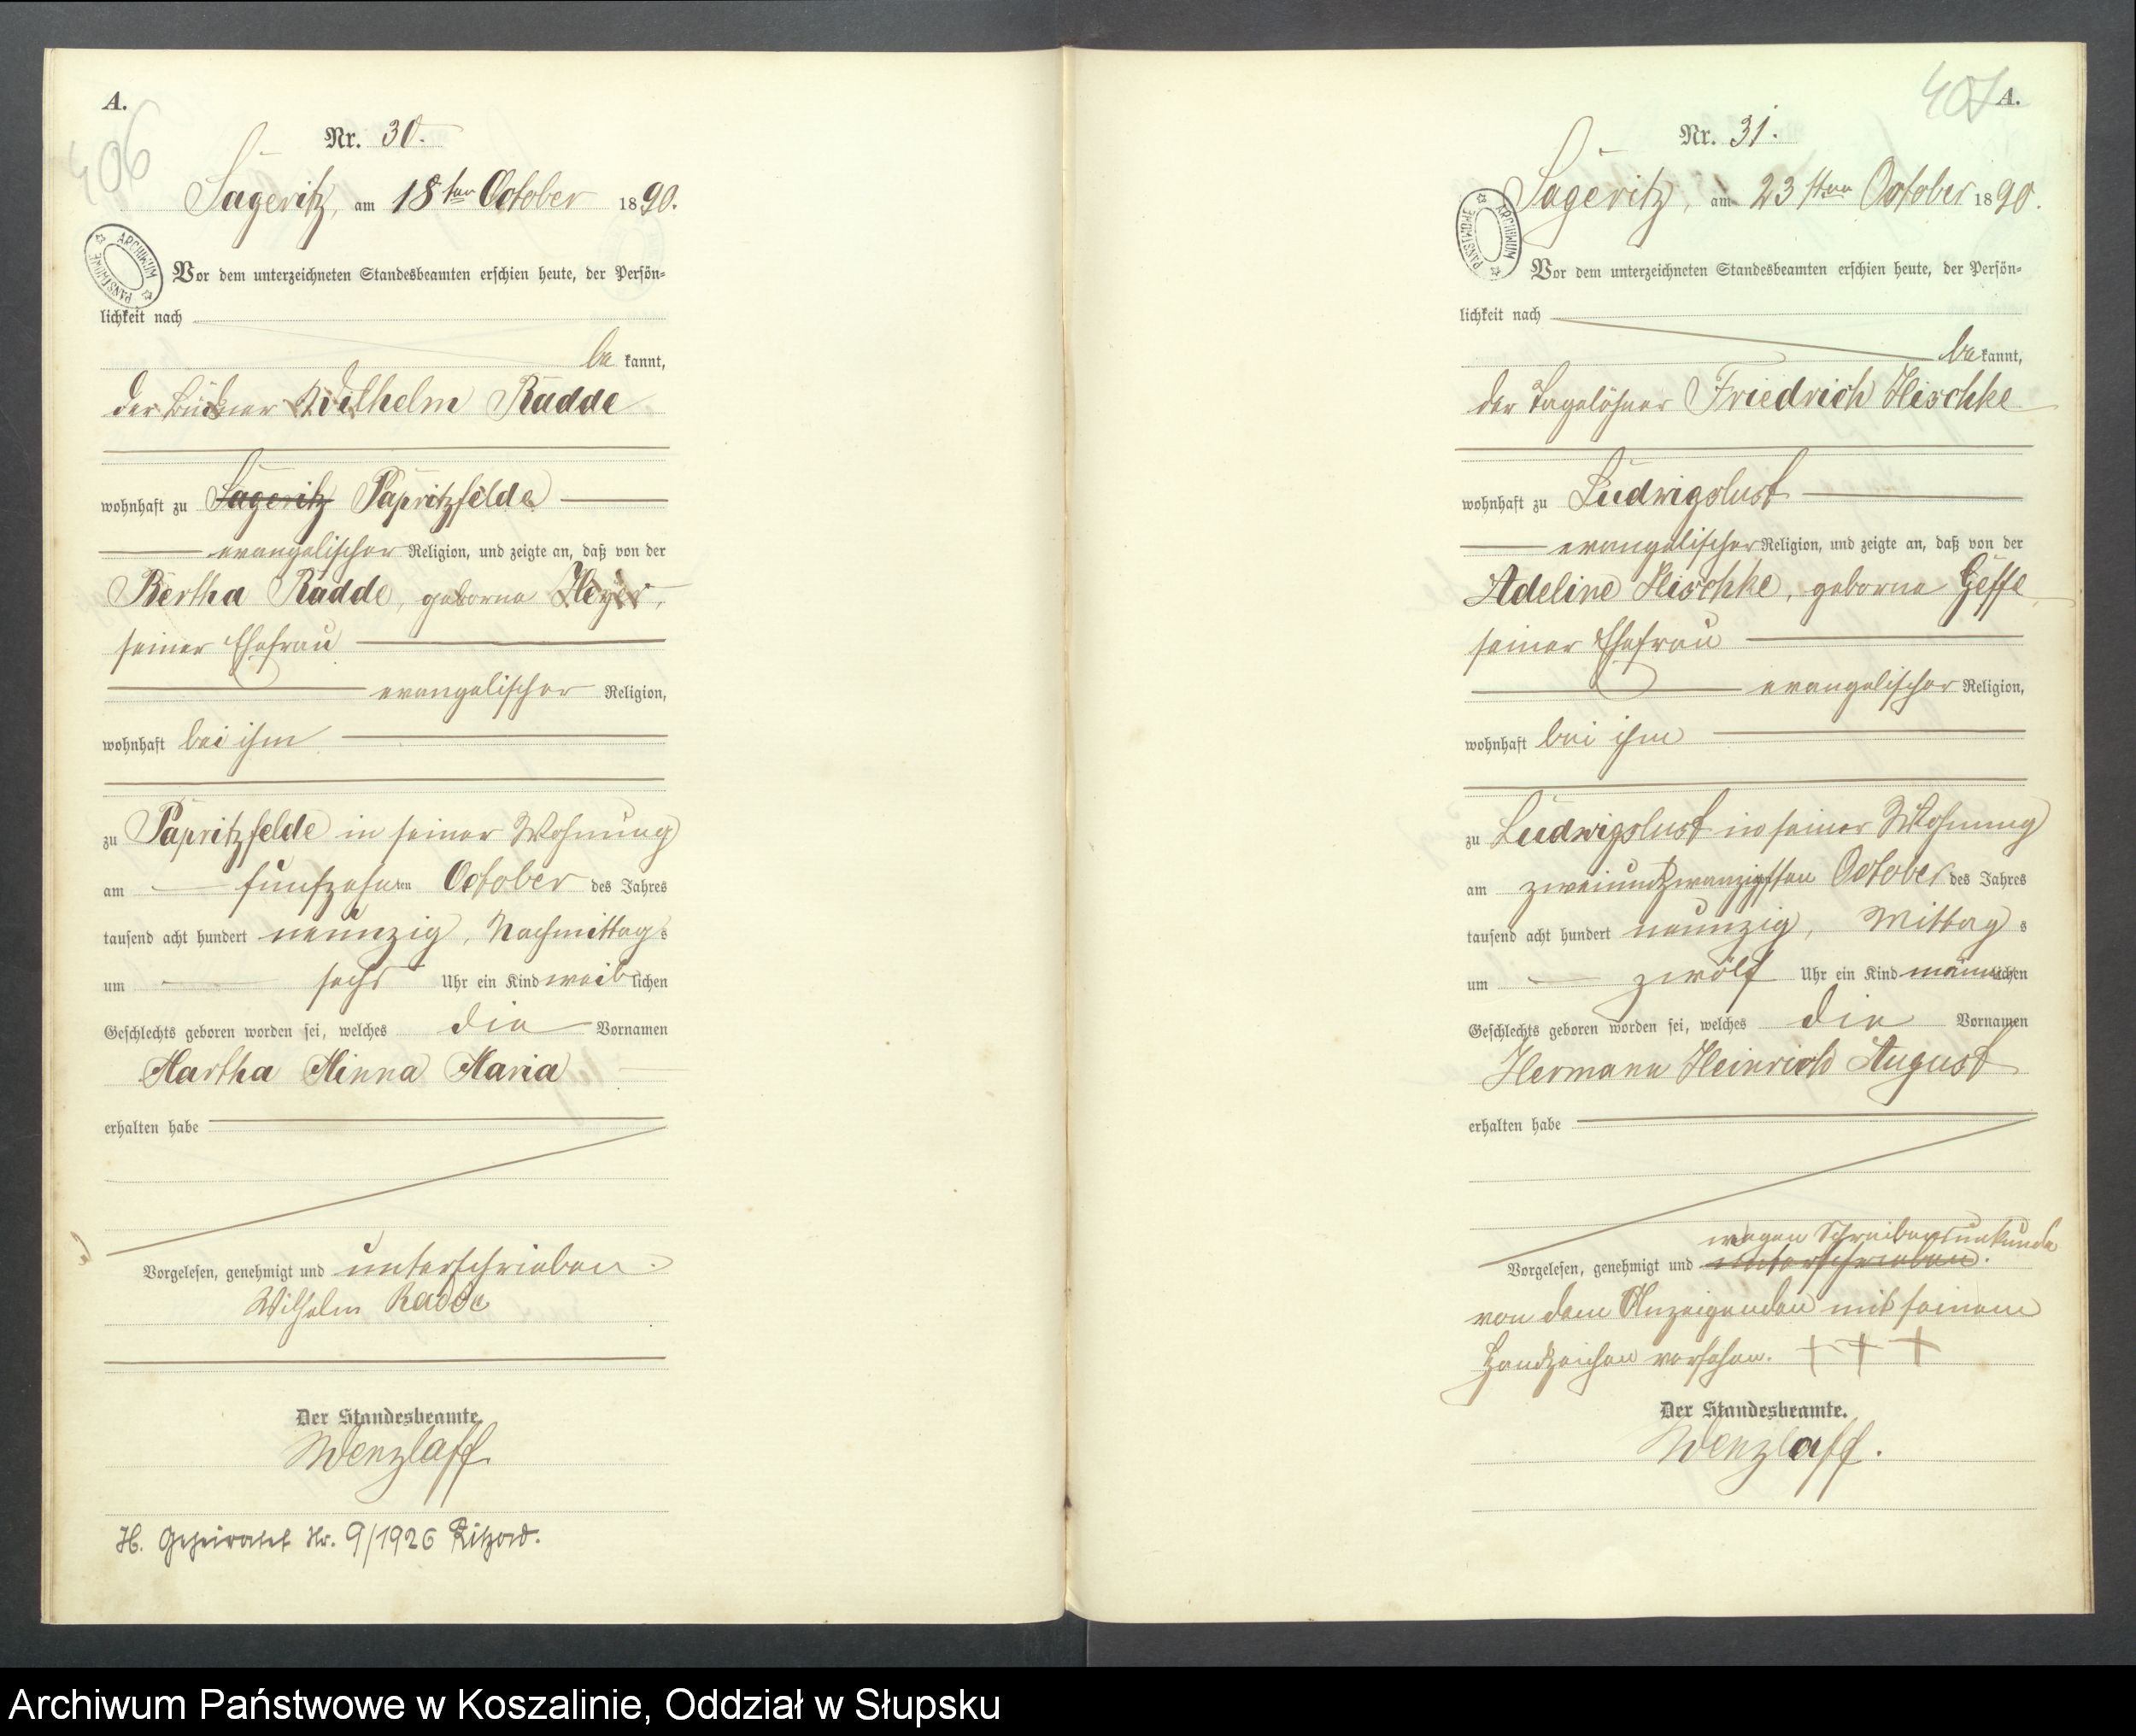 A.
406
Nr. 30.
Sageritz, am 18ten October 1890.
ARCHIWUM PAŃSTWOWE
Vor dem unterzeichneten Standesbeamten erschien heute, der Persön-
lichkeit nach
be kannt,
der Büdner Wilhelm Radde
wohnhaft zu Sageritz Papritzfelde
evangelischer Religion, und zeigte an, daß von der
Bertha Radde, geborne Heyer,
seiner Ehefrau
evangelischer Religion,
wohnhaft bei ihm
zu Papritzfelde in seiner Wohnung
am fünfzehnten October des Jahres
tausend acht hundert neunzig, Nachmittags
um sechs Uhr ein Kind weiblichen
Geschlechts geboren worden sei, welches die Vornamen
Martha Minna Maria
erhalten habe
Vorgelesen, genehmigt und unterschrieben.
Wilhelm Radde
Der Standesbeamte.
Wenzlaff.
H. Geheiratet Nr. 9/1926
407
A.
Nr. 31.
Sageritz, am 23sten October 1890.
ARCHIWUM PAŃSTWOWE
Vor dem unterzeichneten Standesbeamten erschien heute, der Persön-
lichkeit nach
be kannt,
der Tagelöhner Friedrich Mischke
wohnhaft zu Ludwigslust
evangelischer Religion, und zeigte an, daß von der
Adeline Mischke, geborne Geffe,
seiner Ehefrau
evangelischer Religion,
wohnhaft bei ihm
zu Ludwigslust in seiner Wohnung
am zweiundzwanzigsten October des Jahres
tausend acht hundert neunzig, Mittags
um zwölf Uhr ein Kind männlichen
Geschlechts geboren worden sei, welches die Vornamen
Hermann Heinrich August
erhalten habe
wegen Schreibensunkunde
Vorgelesen, genehmigt und unterschrieben.
von dem Anzeigenden mit seinem
Handzeichen versehen. + + +
Der Standesbeamte.
Wenzlaff.
Archiwum Państwowe w Koszalinie, Oddział w Słupsku